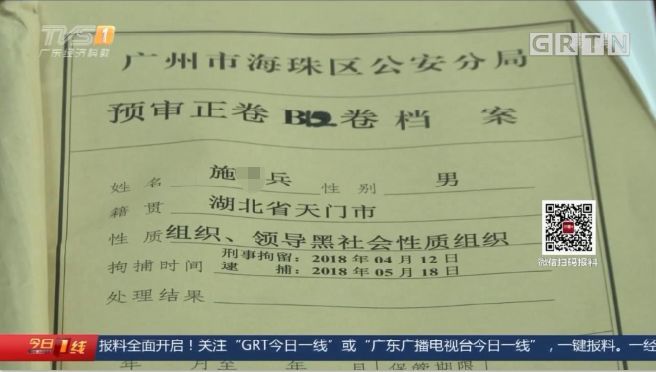 TVS1
广东经济科教
GRTN
广州市海珠区公安分局
预审正卷 B12 卷档 案
姓名 施 兵 性别 男
籍贯 湖北省天门市
性质 组织、领导黑社会性质组织
拘捕时间 刑事拘留：2018 年 04 月 12 日
逮 捕：2018 年 05 月 18 日
处理结果
微信扫码报料
今日1线
报料全面开启！关注“GRT今日一线”或“广东广播电视台今日一线”，一键报料。一经
年 月至 年 月 保管期限